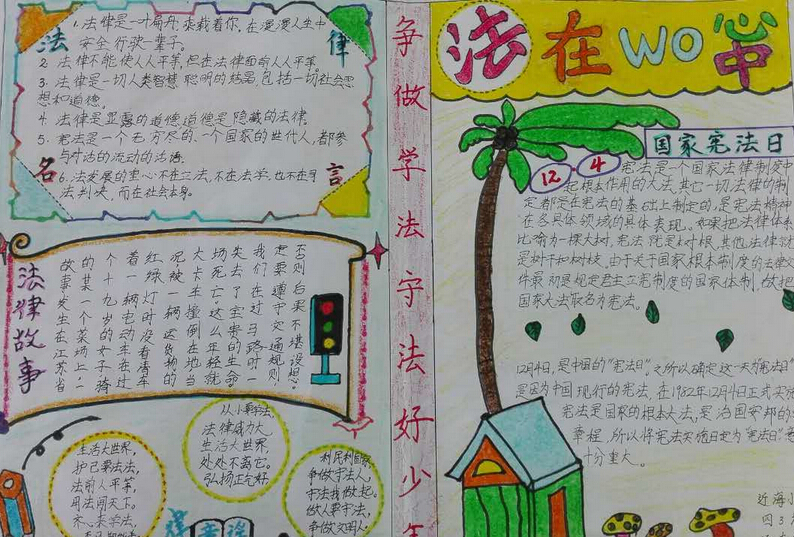 法律名言
1. 法律是一叶扁舟，承载着你，在漫漫人生中
安全行驶一辈子。
2. 法律不能使人人平等，但在法律面前人人平等。
3. 法律是一切人类智慧聪明的结晶，包括一切社会思
想和道德。
4. 法律是显露的道德，道德是隐藏的法律。
5. 宪法是一个无穷尽的、一个国家的世代人，都参
与对话的流动的法语。
6. 法发展的重心不在立法，不在法学，也不在司
法判决，而在社会本身。
法律故事
故事发生在江苏省
的某个菜场上，一
个十九岁的女子骑
着一辆电动车在过
红绿灯时没看清车
况，被一辆送货物的
大卡车撞倒在地，当
场死亡，这么年轻就
失去了宝贵的生命。
我们在过马路时一
定要遵守交通规则，
否则后果不堪设想。
生活大世界，
护己靠法法，
法前人平等，
司法闯天下。
齐心来学法，
从小掌学法，
法律威力大，
生活大世界，
处处不离它，
弘扬正气好。
利民利国家，
争做守法人，
守法我做起，
做人要守法，
争做文明人。
争做学法守法好少年
法在WO心中
国家宪法日
12.4
宪法是一个国家法律制度中
起根本作用的大法，其它一切法律的制
定都是在宪法的基础上制定的，是宪法精神
在各具体领域的具体表现。如果把法律体系
比喻为一棵大树，宪法就是树根，其他法律就
是树干和树枝，由于关于国家根本制度的法律文
件最初是规定君主立宪制度的国家体制，故把
国家大法取名为宪法。
12月4日，是中国的“宪法日”。之所以确定这一天为“宪法日”，
是因为中国现行的宪法，在1982年12月4日正式实施
宪法是国家的根本大法，是治国安邦的
章程，所以将宪法实施日定为“宪法日”，意
十分重大。
近海小
四3